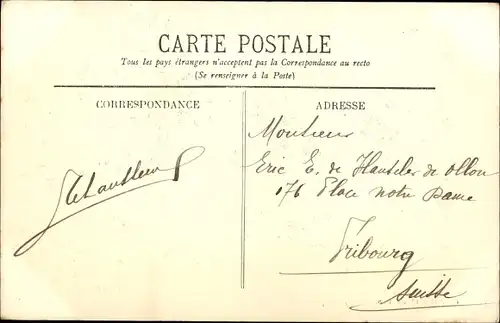 CARTE POSTALE
Tous les pays étrangers n'acceptent pas la Correspondance au recto
(Se renseigner à la Poste)
CORRESPONDANCE
ADRESSE
Monsieur
Eric E. de de Ollon
176 Place Notre Dame
Fribourg
Suisse